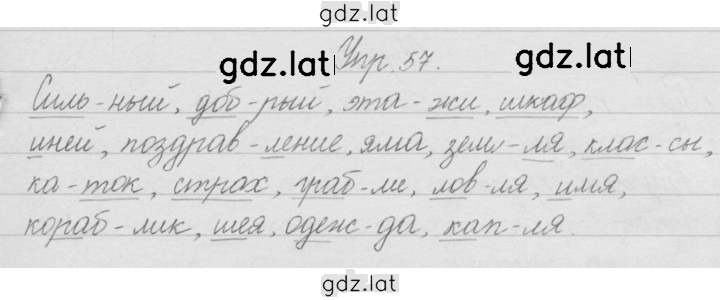 gdz.latı
gdz.latı Упр. 57. gdz.latı
Силь-ный, доб-рый, эта-жи, шкаф,
иней, поздрав-ление, яма, зем-ля, клас-сы,
ка-ток, страх, граб-ли, лов-ля, имя,
кораб-лик, шея, одеж-да, кап-ля.
gdz.latı